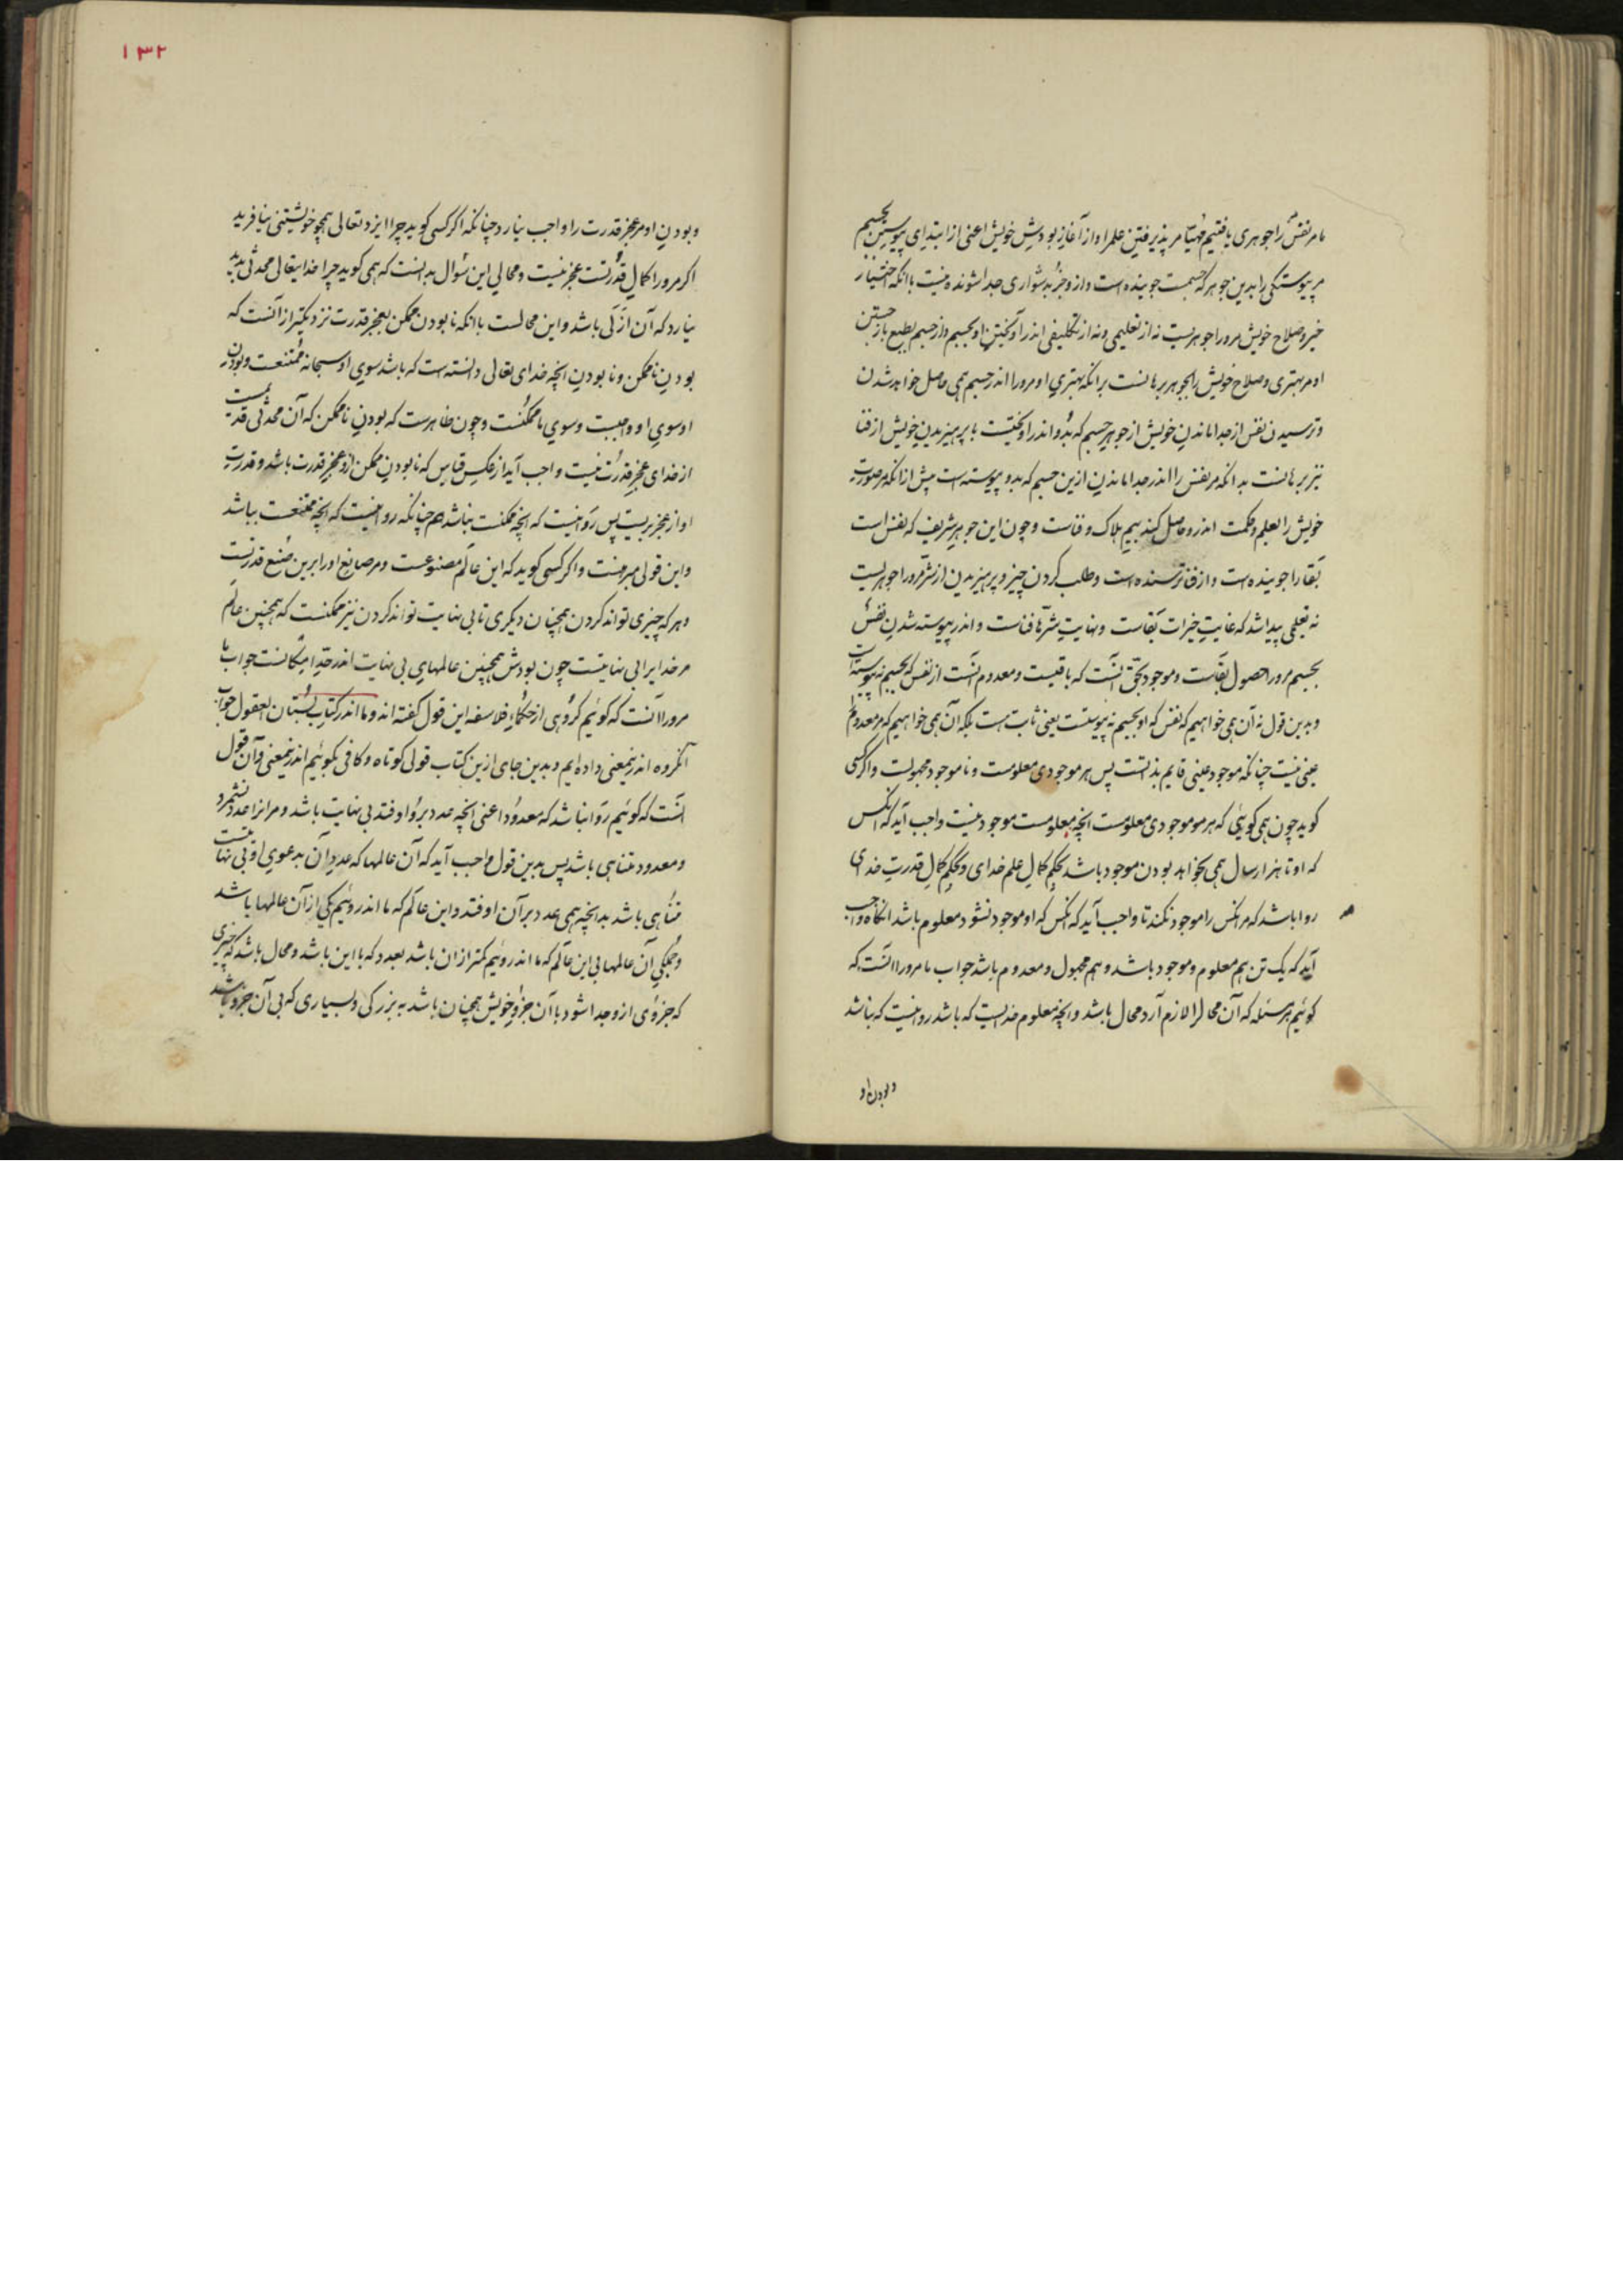 ما مر نفس را جوهری یافتیم مهیّا مر پذیرفتن علم را و از آغاز بودش خویش اعنی از ابتدای پیوستن بجسم
مر پیوستگی را بدین جوهر که جسمست جوینده است و از و جز بدشواری جدا شونده نیست با آنکه اختیار
خیر و صلاح خویش مرو را جوهریست نه از تعلیمی و نه از تکلیفی اندر آویختن او بجسم و از جسم بطبع باز جستن
او مر بهتری و صلاح خویش را بجوهر برهانست بر انکه بهتری او مرو را اندر جسم همی حاصل خواهد شدن
و ترسیدن نفس از جدا ماندن خویش از جوهر جسم که بدو اندر آویختست با پرهیزیدن خویش از فنا
نیز برهانست بدانکه مر نفس را اندر جدا ماندن ازین جسم که بدو پیوسته است پیش از انکه مر صورت
خویش را بعلم و حکمت اندرو حاصل کند بیم هلاک و فناست و چون این جوهر شریف که نفس است
بقا را جوینده است و از فنا ترسنده است و طلب کردن چیز و پرهیزیدن از شرّ مرو را جوهریست
نه تعلیمی پیدا شد که غایت خیرات بقاست و نهایت شرّها فناست و اندر پیوسته شدن نفس
بجسم مرو را حصول بقاست و موجود بحق آنست که باقیست و معدوم آنست از نفس که بجسم نه پیوسته است
و بدین قول نه آن همی خواهیم که نفس که او بجسم نه پیوستست یعنی ثابت هست بلکه آن همی خواهیم که مر معدوم را
عینی نیست چنانکه موجود عینی قایم بذاتست پس هر موجودی معلومست و نا موجود مجهولست و اگر کسی
گوید چون همی گویئی که هر موجودی معلومست انچه معلومست موجود نیست واجب آید که آنکس
که او تا هزار سال همی بخواهد بودن موجود باشد بحکم کمال علم خدای و بحکم کمال قدرت خدای
روا باشد که مر آنکس را موجود نکند تا واجب آید که آنکس که او موجود نشود معلوم باشد آنگاه واجب
آید که یک تن هم معلوم و موجود باشد و هم مجهول و معدوم باشد جواب ما مرو را آنست که
گوئیم هر مسئله که آن محال را لازم آرد محال باشد و انچه معلوم خدایست که باشد روا نیست که نباشد
و بودن او
۱۳۲
و بودن او مر عجز قدرت را واجب نیارد چنانکه اگر کسی گوید چرا ایزد تعالی همچو خویشتنی نیافرید
اگر مرو را کمال قدرتست عجز نیست و محالی این سؤال بدانست که همی گوید چرا خدایتعالی محدثی پدید
نیارد که آن ازلی باشد و این محالست با آنکه نا بودن ممکن بعجز قدرت نزدیکتر از آنست که
بودن نا ممکن و نا بودن انچه خدای تعالی دانسته است که باشد سوی او سبحانه ممتنعست و بودن
او سوی او واجبست و سوی ما ممکنست و چون ظاهرست که بودن نا ممکن که آن محدثی قدیمست
از خدای عجز قدرت نیست واجب آید از عکس قیاس که نا بودن ممکن ازو عجز قدرت باشد و قدرت
او از عجز بریست پس روا نیست که انچه ممکنست نباشد هم چنانکه روا نیست که انچه ممتنعست بباشد
و این قولی مبرهنست و اگر کسی گوید که این عالم مصنوعست و مر صانع او را برین صنع قدرتست
و هر که چیزی تواند کردن همچنان دیگری تا بی نهایت تواند کردن نیز ممکنست که همچنین عالم
مر خدایرا بی نهایتست چون بودش همچنین عالمهای بی نهایت اندر حدّ امکانست جواب ما
مرو را آنست که گوئیم گروهی از حکماء فلاسفه این قول گفته اند و ما اندر کتاب بستان العقول جواب
آنگروه اندرینمعنی داده ایم و بدین جای ازین کتاب قولی کوتاه و کافی بگوئیم اندرینمعنی و آن قول
آنست که گوئیم روا نباشد که معدود اعنی انچه عدد برو اوفتد بی نهایت باشد و مر انرا عدد نشمرد
و معدود متناهی باشد پس بدین قول واجب آید که آن عالمها که عدد آن بدعوی او بی نهایتست
متناهی باشد بدانچه همی عدد بر آن اوفتد و این عالم که ما اندروئیم یکی از آن عالمها باشد
و جملگی آن عالمها بی این عالم که ما اندروئیم کمتر از ان باشد بعدد که با این باشد و محال باشد که چیزی
که جزوی ازو جدا شود با آن جزو خویش همچنان باشد به بزرگی و بسیاری که بی آن جزو باشد